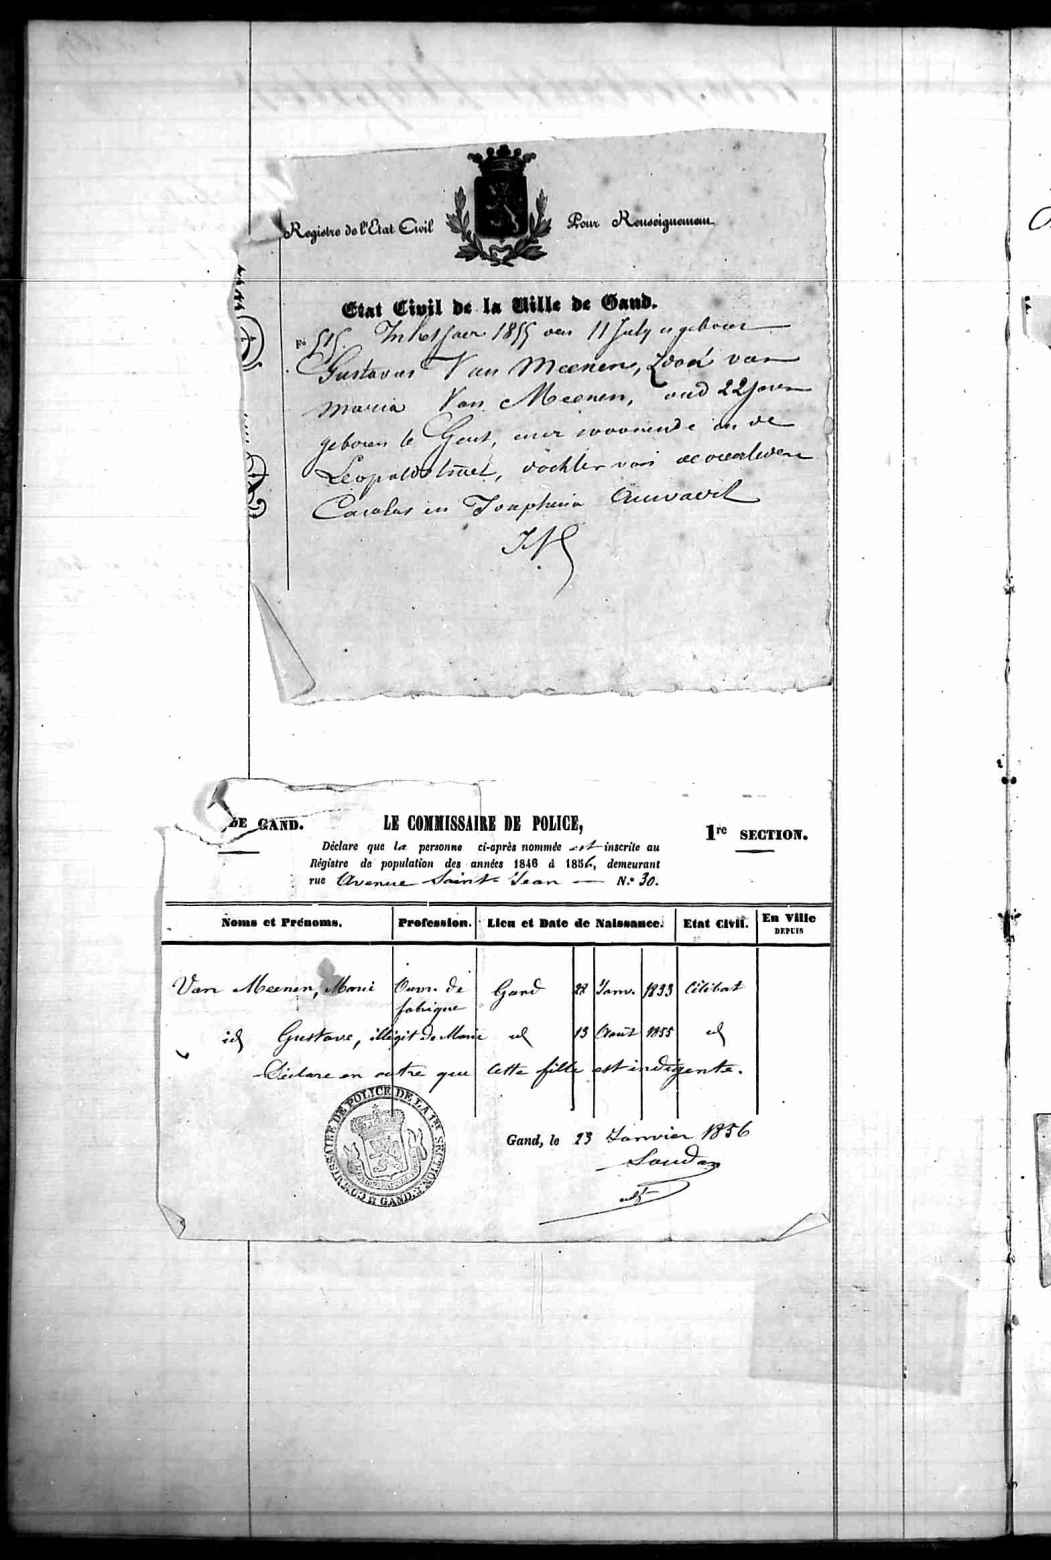 Registre de l'Etat Civil
Pour Renseignemens
Etat Civil de la Ville de Gand.
In het Jaer 1855 den 11 July is geboren
Gustavus Van Meenen, Zoon van
Maria Van Meenen, oud 22 jaren
geboren te Gent, en er woonende in de
Leopoldstraet, dochter van
Carolus en Josephina
DE GAND.
LE COMMISSAIRE DE POLICE,
1re SECTION.
Déclare que la personne ci-après nommée est inscrite au
Régistre de population des années 1846 à 1856, demeurant
rue Avenue Saint Jean — N.° 30.
Noms et Prénoms. Profession. Lieu et Date de Naissance. Etat Civil. En Ville DEPUIS
Van Meenen, Marie Ouvr. de Gand 22 Janv. 1833 Célibat
fabrique
id Gustave, illégit de Marie id 13 Août 1855 id
Déclare en outre que cette fille est indigente.
COMMISSAIRE DE POLICE DE LA 1RE SECTION À GAND
Gand, le 23 Janvier 1856